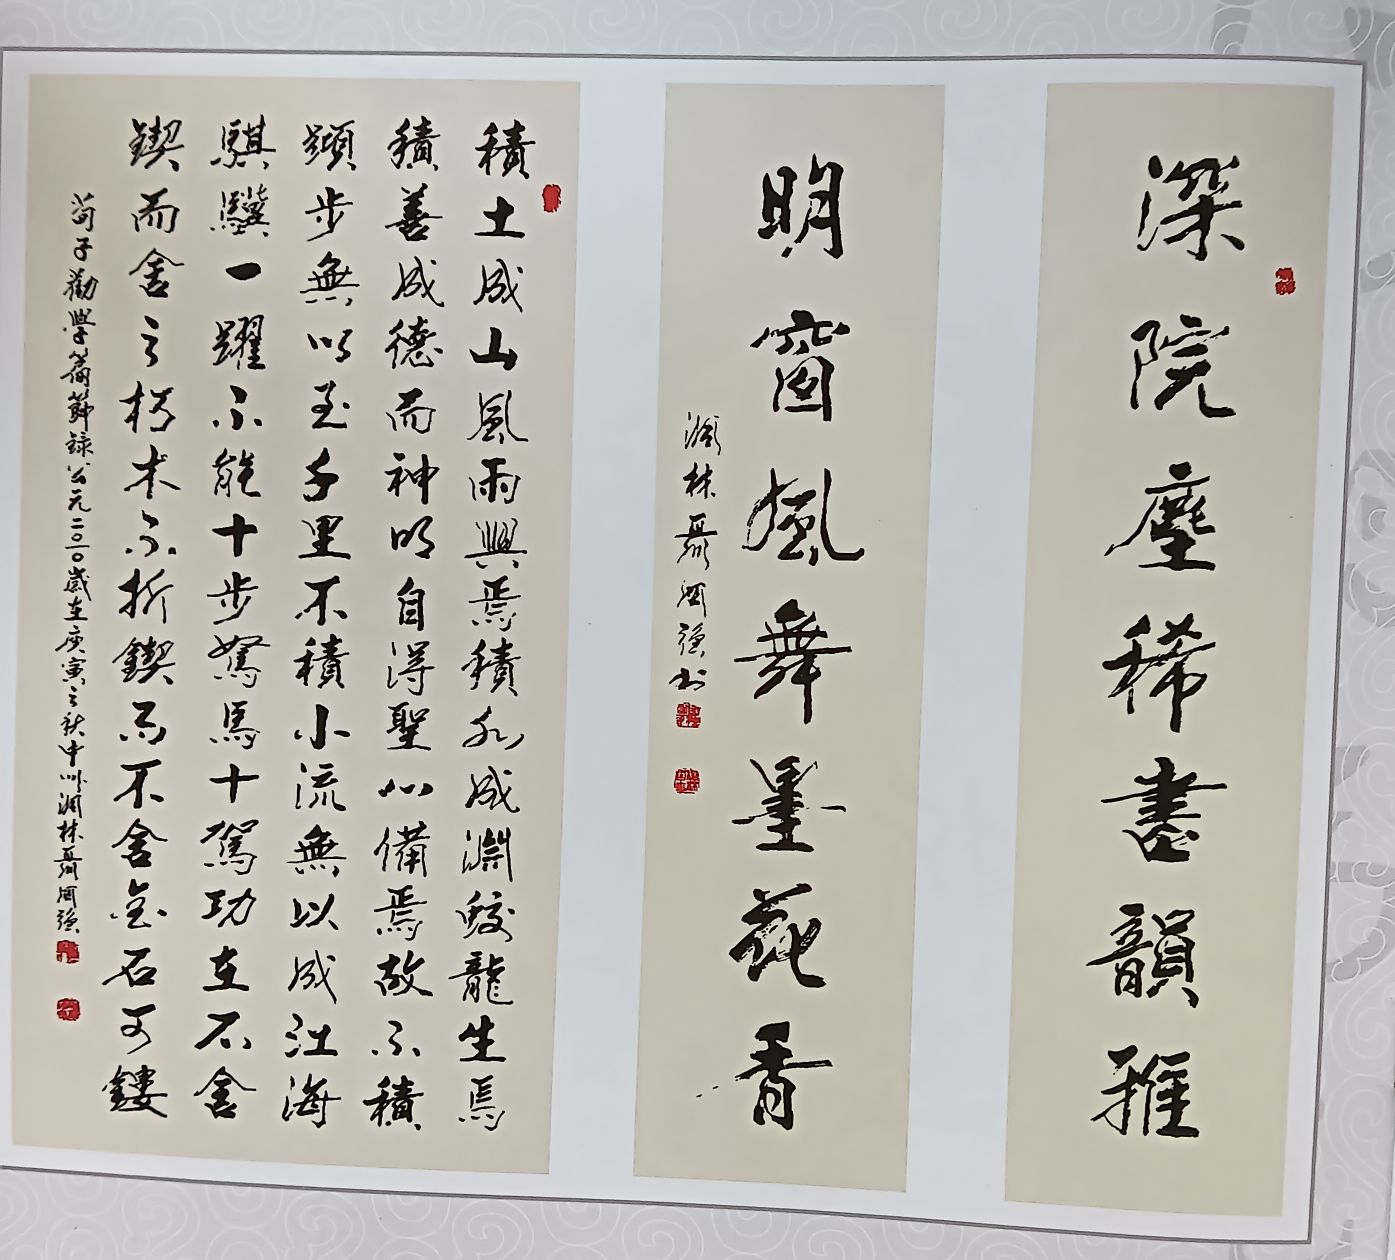 深院塵稀書韻雅
明窗風舞墨花香
積土成山風雨興焉積水成淵蛟龍生焉
積善成德而神明自得聖心備焉故不積
蹞步無以至千里不積小流無以成江海
騏驥一躍不能十步駑馬十駕功在不舍
鍥而舍之朽木不折鍥而不舍金石可鏤
荀子勸學篇節錄公元二〇一〇歲在庚寅之秋中州潤林聶國強